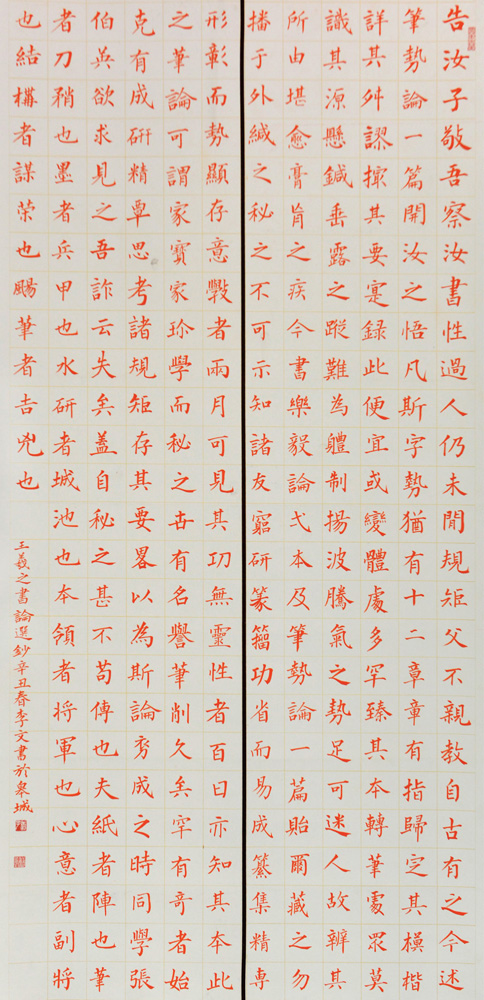 告汝子敬吾察汝書性過人仍未閒規矩父不親教自古有之今述
筆勢論一篇開汝之悟凡斯字勢猶有十二章章有指歸定其模楷
詳其舛謬撮其要寔錄此便宜或變體處多罕臻其本轉筆處眾莫
識其源懸鍼垂露之蹤難為體制揚波騰氣之勢足可迷人故辨其
所由堪愈膏肓之疾今書樂毅論弌本及筆勢論一篇貽爾藏之勿
播于外緘之秘之不可示知諸友窮研篆籀功省而易成纂集精專
形彰而勢顯存意斅者兩月可見其功無靈性者百日亦知其本此
之筆論可謂家寶家珍學而秘之世有名譽筆削久矣罕有奇者始
克有成研精覃思考諸規矩存其要畧以為斯論初成之時同學張
伯英欲求見之吾詐云失矣蓋自秘之甚不苟傳也夫紙者陣也筆
者刀矟也墨者兵甲也水研者城池也本領者將軍也心意者副將
也結構者謀策也颺筆者吉兇也
王羲之書論選鈔辛丑春李文書於皋城